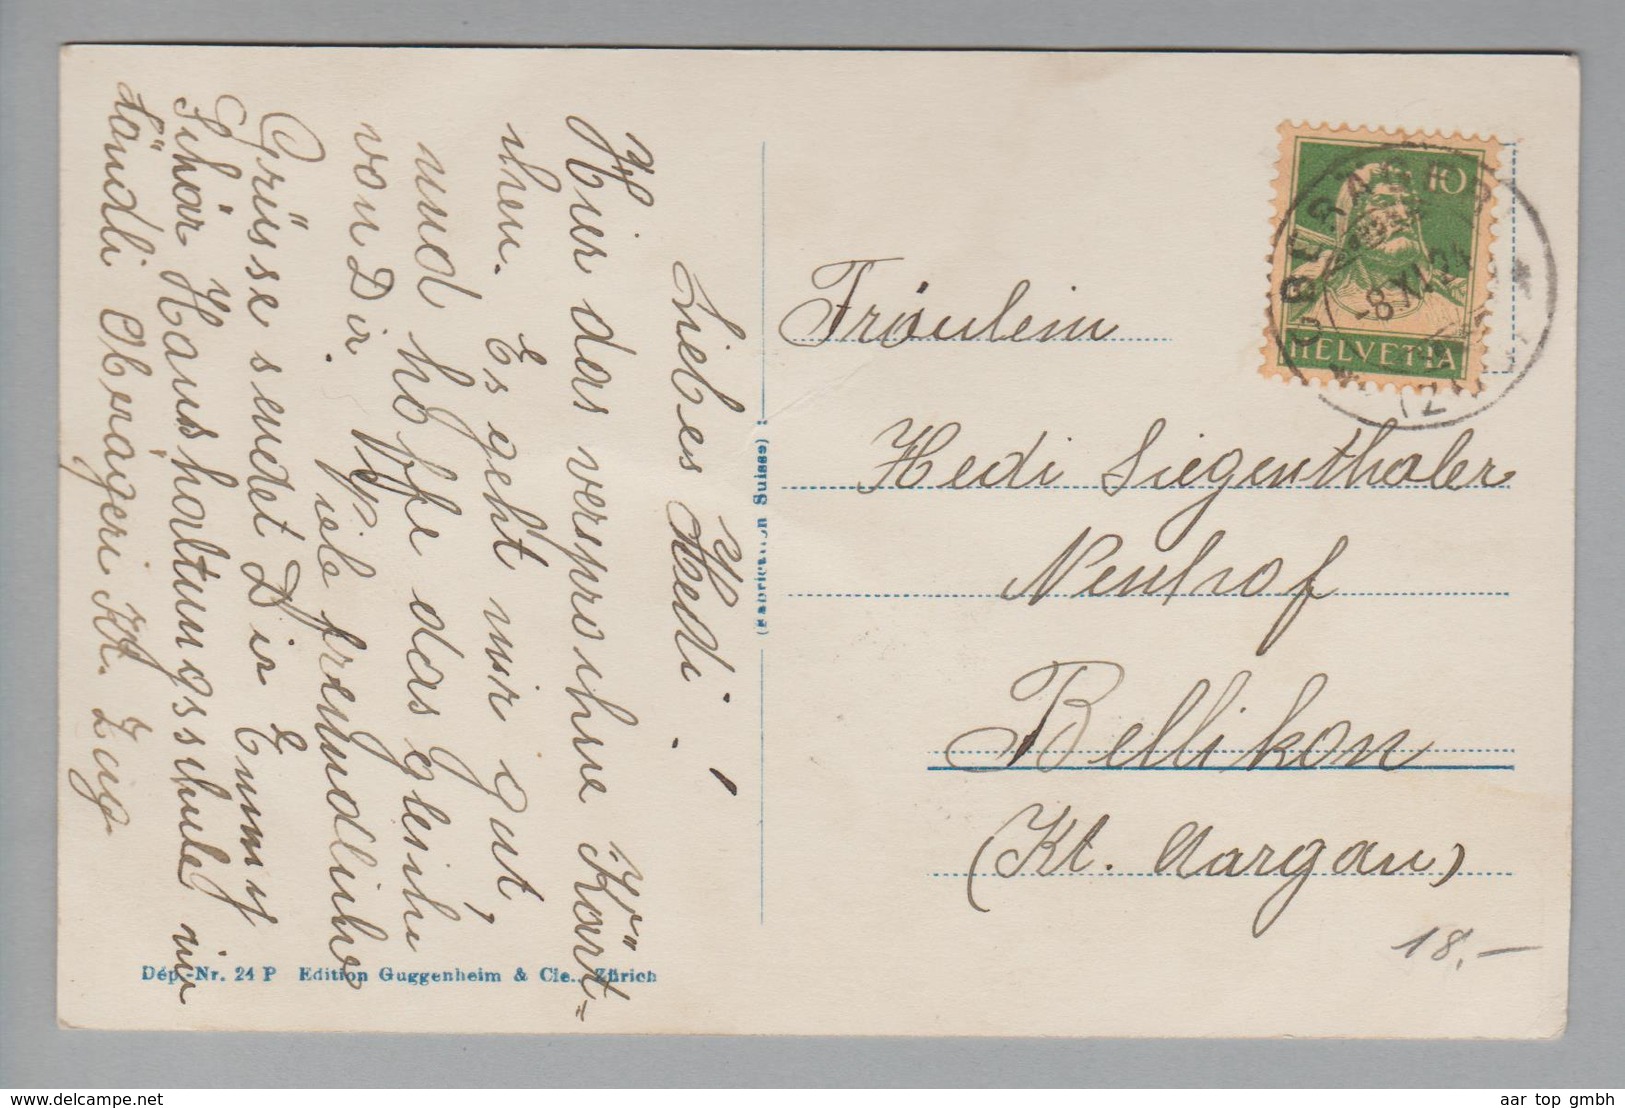 Liebes Hedi.
Hier das versprochne Kärt=
chen. Es geht mir gut,
und hoffe das gleiche
von Dir. Viele freundliche
Grüsse sendet Dir Emmy
Schär Haushaltungsschule im
Ländli Oberägeri Kt. Zug
(Fabrication Suisse)
Dép.-Nr. 24 P Edition Guggenheim & Cie., Zürich
OBERÄGERI
-8.XI.24
(ZUG)
10
HELVETIA
Fräulein
Hedi Siegenthaler
Neuhof
Bellikon
(Kt. Aargau)
18.-
www.delcampe.net
aar top gmbh